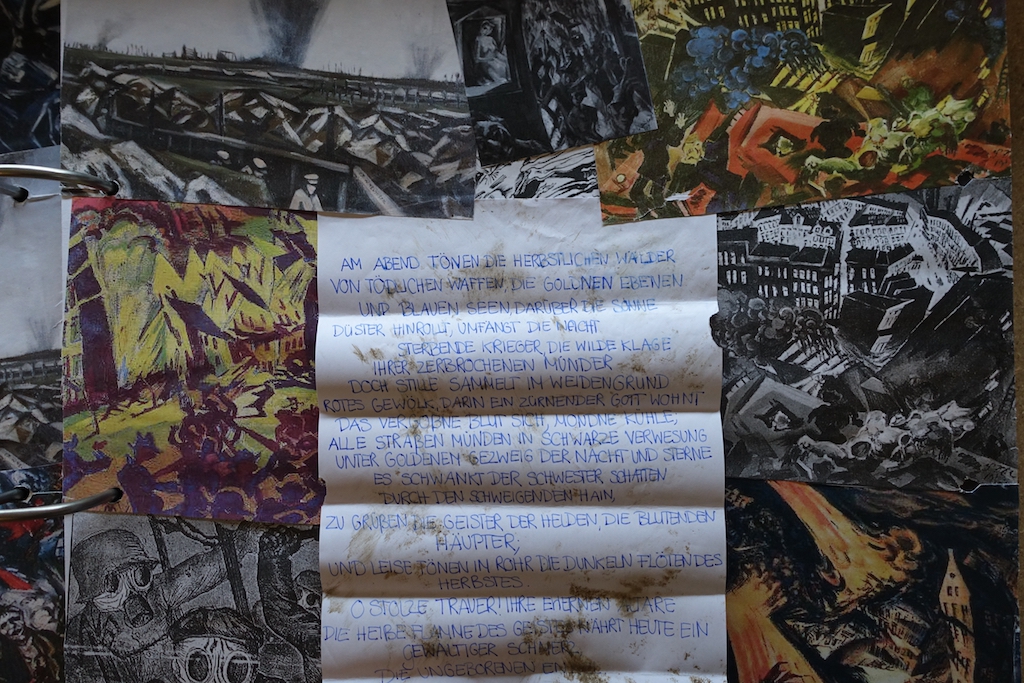 AM ABEND TÖNEN DIE HERBSTLICHEN WÄLDER
VON TÖDLICHEN WAFFEN, DIE GOLDNEN EBENEN
UND BLAUEN SEEN, DARÜBER DIE SONNE
DÜSTER HINROLLT, UMFÄNGT DIE NACHT
STERBENDE KRIEGER, DIE WILDE KLAGE
IHRER ZERBROCHENEN MÜNDER
DOCH STILLE SAMMELT IM WEIDENGRUND
ROTES GEWÖLK, DARIN EIN ZÜRNENDER GOTT WOHNT
DAS VERGOSSNE BLUT SICH, MONDNE KÜHLE,
ALLE STRAßEN MÜNDEN IN SCHWARZE VERWESUNG
UNTER GOLDENEM GEZWEIG DER NACHT UND STERNE
ES SCHWANKT DER SCHWESTER SCHATTEN
DURCH DEN SCHWEIGENDEN HAIN,
ZU GRÜßEN DIE GEISTER DER HELDEN, DIE BLUTENDEN
HÄUPTER;
UND LEISE TÖNEN IN ROHR DIE DUNKELN FLÖTEN DES
HERBSTES.
O STOLZE TRAUER! IHRE EHERNEN
DIE HEIßE FLAMME DES GEISTES NÄHRT HEUTE EIN
GEWALTIGER SCHMERZ
DIE UNGEBORENEN